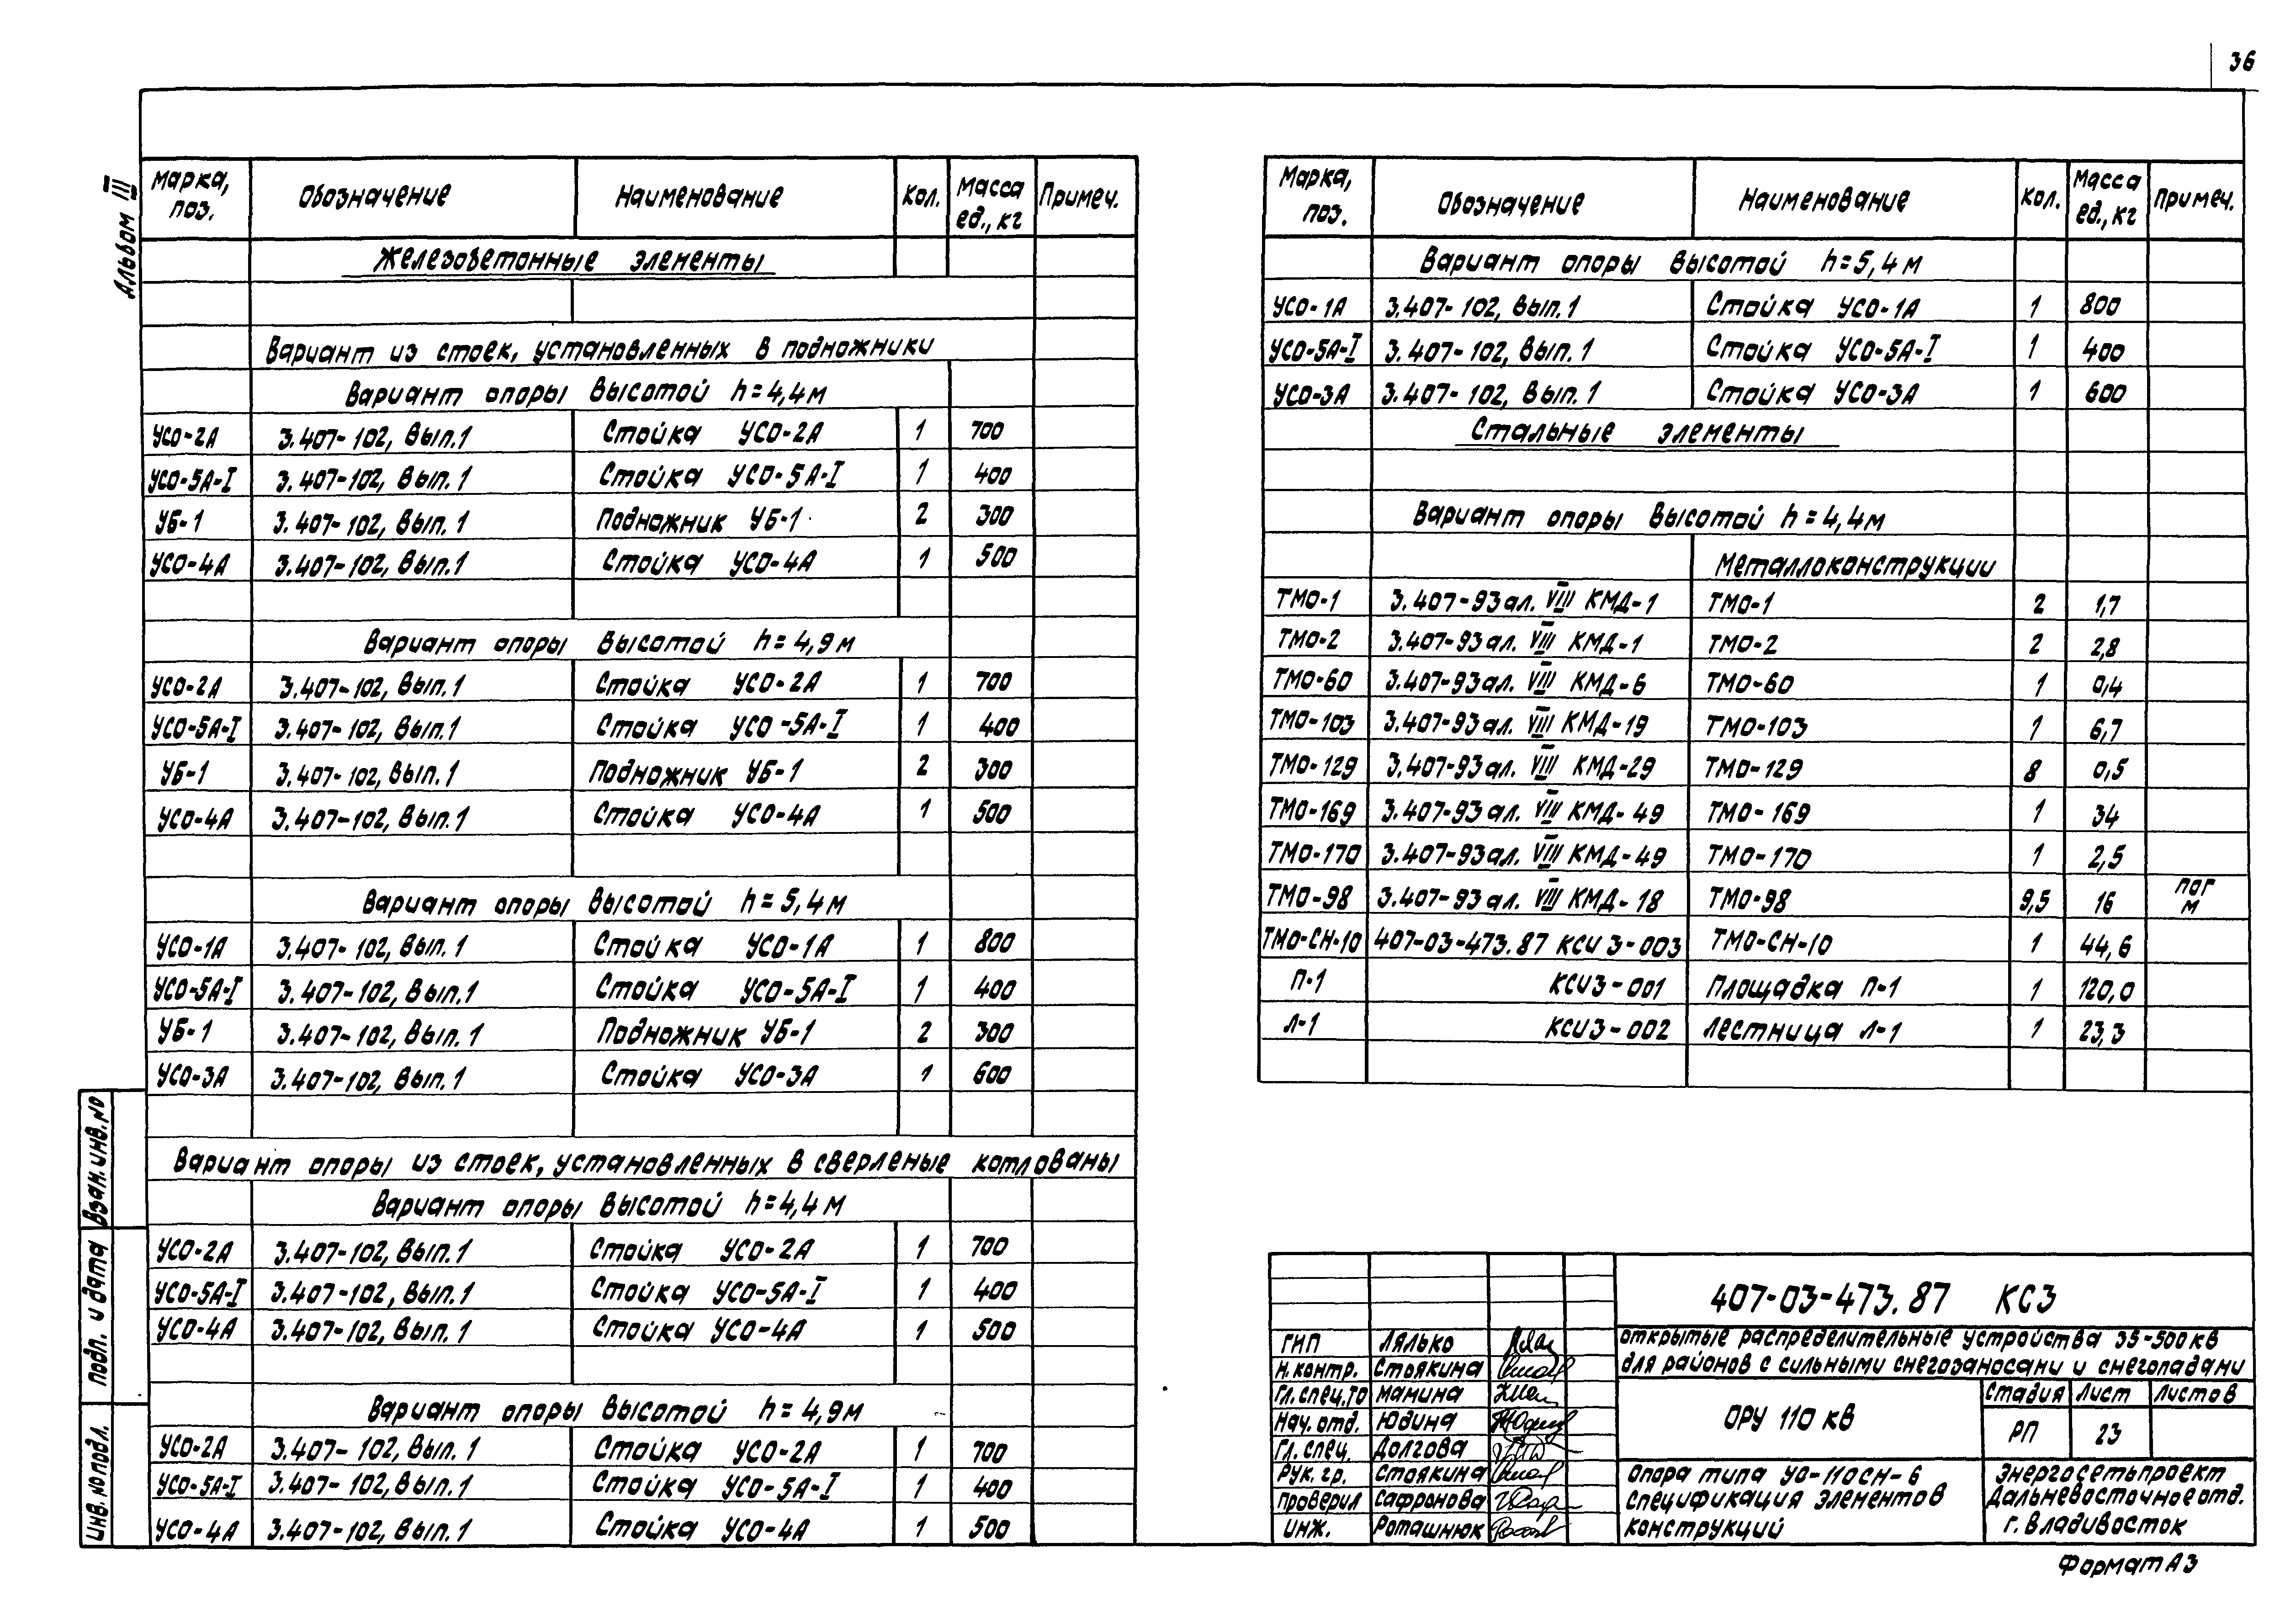 36
Альбом III
Марка, поз. Обозначение Наименование Кол. Масса ед., кг Примеч.
Железобетонные элементы
Вариант из стоек, установленных в подножники
Вариант опоры высотой h=4,4м
УСО-2А 3.407-102, Вып.1 Стойка УСО-2А 1 700
УСО-5А-I 3.407-102, Вып.1 Стойка УСО-5А-I 1 400
УБ-1 3.407-102, Вып.1 Подножник УБ-1 2 300
УСО-4А 3.407-102, Вып.1 Стойка УСО-4А 1 500
Вариант опоры высотой h=4,9м
УСО-2А 3.407-102, Вып.1 Стойка УСО-2А 1 700
УСО-5А-I 3.407-102, Вып.1 Стойка УСО-5А-I 1 400
УБ-1 3.407-102, Вып.1 Подножник УБ-1 2 300
УСО-4А 3.407-102, Вып.1 Стойка УСО-4А 1 500
Вариант опоры высотой h=5,4м
УСО-1А 3.407-102, Вып.1 Стойка УСО-1А 1 800
УСО-5А-I 3.407-102, Вып.1 Стойка УСО-5А-I 1 400
УБ-1 3.407-102, Вып.1 Подножник УБ-1 2 300
УСО-3А 3.407-102, Вып.1 Стойка УСО-3А 1 600
Вариант опоры из стоек, установленных в сверленые котлованы
Вариант опоры высотой h=4,4м
УСО-2А 3.407-102, Вып.1 Стойка УСО-2А 1 700
УСО-5А-I 3.407-102, Вып.1 Стойка УСО-5А-I 1 400
УСО-4А 3.407-102, Вып.1 Стойка УСО-4А 1 500
Вариант опоры высотой h=4,9м
УСО-2А 3.407-102, Вып.1 Стойка УСО-2А 1 700
УСО-5А-I 3.407-102, Вып.1 Стойка УСО-5А-I 1 400
УСО-4А 3.407-102, Вып.1 Стойка УСО-4А 1 500
Взам. инв. №
Подп. и дата
Инв. № подл.
Марка, поз. Обозначение Наименование Кол. Масса ед., кг Примеч.
Вариант опоры высотой h=5,4м
УСО-1А 3.407-102, Вып.1 Стойка УСО-1А 1 800
УСО-5А-I 3.407-102, Вып.1 Стойка УСО-5А-I 1 400
УСО-3А 3.407-102, Вып.1 Стойка УСО-3А 1 600
Стальные элементы
Вариант опоры высотой h=4,4м
Металлоконструкции
ТМО-1 3.407-93 ал. VIII КМД-1 ТМО-1 2 1,7
ТМО-2 3.407-93 ал. VIII КМД-1 ТМО-2 2 2,8
ТМО-60 3.407-93 ал. VIII КМД-6 ТМО-60 1 0,4
ТМО-103 3.407-93 ал. VIII КМД-19 ТМО-103 1 6,7
ТМО-129 3.407-93 ал. VIII КМД-29 ТМО-129 8 0,5
ТМО-169 3.407-93 ал. VIII КМД-49 ТМО-169 1 34
ТМО-170 3.407-93 ал. VIII КМД-49 ТМО-170 1 2,5
ТМО-98 3.407-93 ал. VIII КМД-18 ТМО-98 9,5 16 пог м
ТМО-СН-10 407-03-473.87 КСИ3-003 ТМО-СН-10 1 44,6
П-1 КСИ3-001 Площадка П-1 1 120,0
Л-1 КСИ3-002 Лестница Л-1 1 23,3
407-03-473.87 КС3
Открытые распределительные устройства 35-500кв
для районов с сильными снегозаносами и снегопадами
ГИП Лялько
Н.контр. Стоякина
Гл.спец.ТО Мамина
Нач. отд. Юдина
Гл. спец. Долгова
Рук. гр. Стоякина
Проверил Сафронова
Инж. Роташнюк
ОРУ 110 кв
Стадия Лист Листов
РП 23
Опора типа УО-110СН-6
Спецификация элементов
конструкций
Энергосетьпроект
Дальневосточное отд.
г. Владивосток
Формат А3